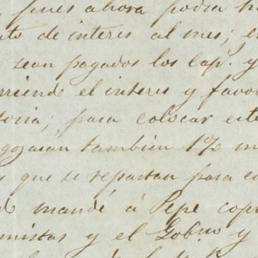 pues ahora podia h
to de interes al mes; e
sean pagados los cap.s y
rriendo el interes y favo
toria; para colocar este
gozaran tambien 1% m
s que se repartan para c
mandé á Pepe cop
mistas y el Gob.no y